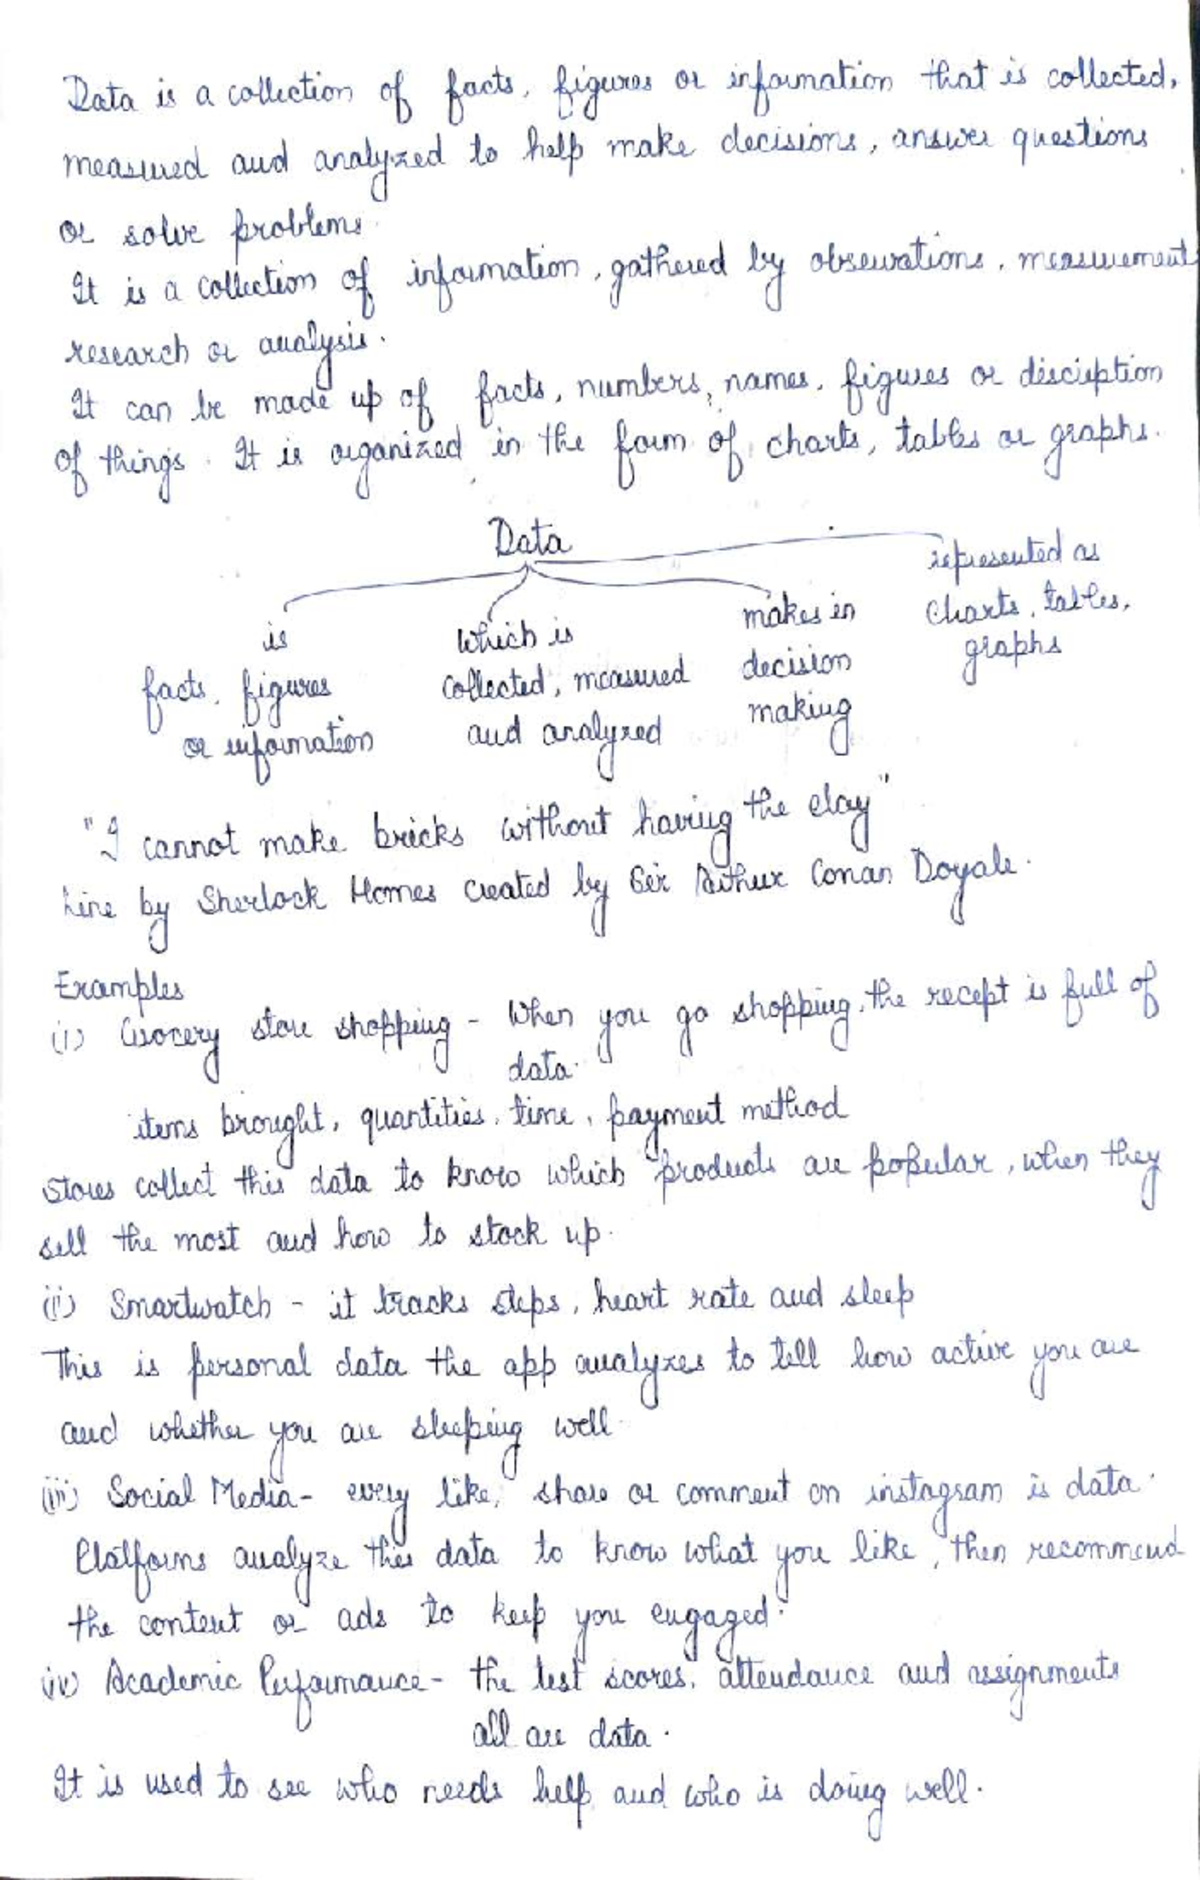 Data is a collection of facts, figures or information that is collected,
measured and analyzed to help make decisions, answer questions
or solve problems.
It is a collection of information, gathered by observations, measurement
research or analysis.
It can be made up of facts, numbers, names, figures or disciption
of things. It is organized in the form of charts, tables or graphs.
Data
is
facts, figures
or information
which is
collected, measured
and analyzed
makes in
decision
making
represented as
charts, tables,
graphs
"I cannot make bricks without having the clay"
Line by Sherlock Homes created by Sir Arthur Conan Doyale.
Examples
(i) Grocery store shopping - When you go shopping, the recept is full of
data.
items brought, quantities, time, payment method
Stores collect this data to know which products are popular, when they
sell the most and how to stock up.
(ii) Smartwatch - it tracks steps, heart rate and sleep
This is personal data the app analyzes to tell how active you are
and whether you are sleeping well.
(iii) Social Media - every like, share or comment on instagram is data.
Platforms analyze this data to know what you like, then recommend
the content or ads to keep you engaged.
(iv) Academic Performance - the test scores, attendance and assignments
all are data.
It is used to see who needs help and who is doing well.